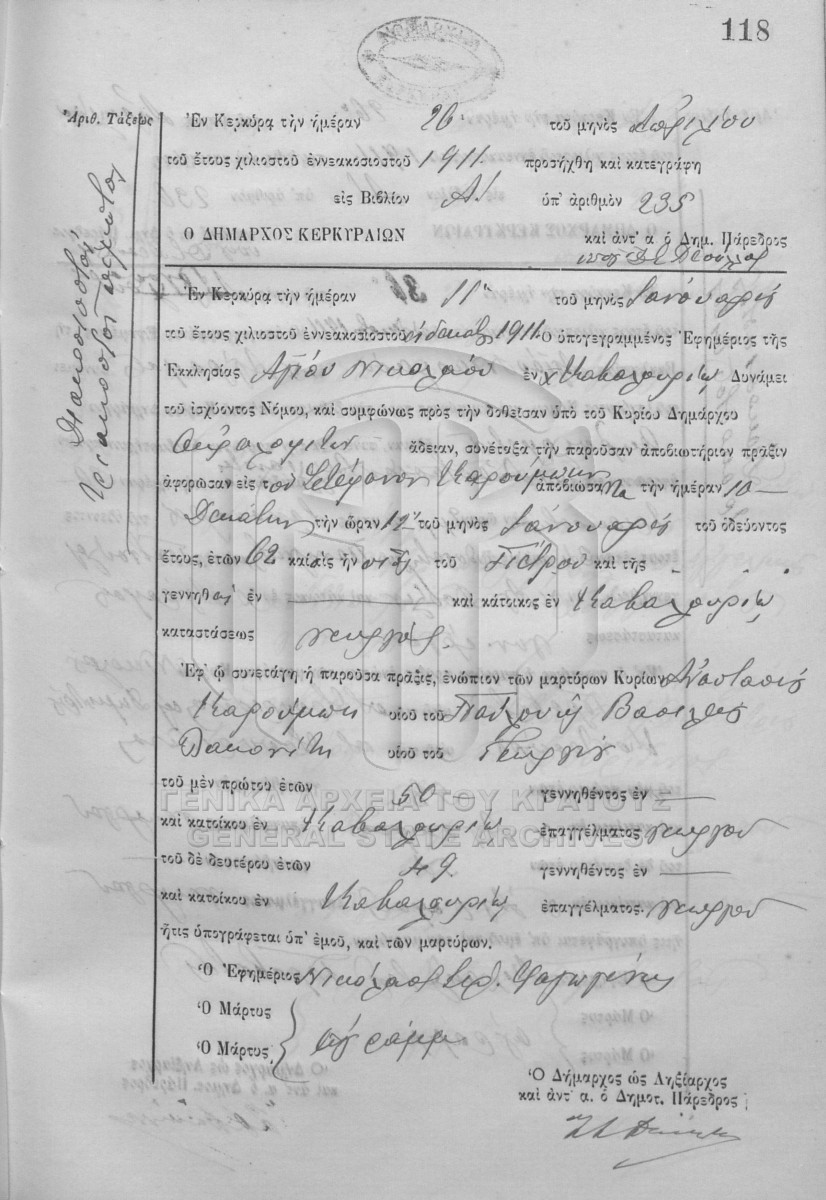 118
Ἀριθ. Τάξεως
Ἐν Κερκύρᾳ τὴν ἡμέραν 26 τοῦ μηνὸς Ἀπριλίου
τοῦ ἔτους χιλιοστοῦ ἐννεακοσιοστοῦ 1911 προσήχθη καὶ κατεγράφη
εἰς Βιβλίον Α ὑπ' ἀριθμὸν 235
Ο ΔΗΜΑΡΧΟΣ ΚΕΡΚΥΡΑΙΩΝ καὶ ἀντ' α ὁ Δημ. Πάρεδρος
Διακοσιοστὸς
τριακοστὸς πέμπτος
Ἐν Κερκύρᾳ τὴν ἡμέραν 11 τοῦ μηνὸς Ἰανουαρίου
τοῦ ἔτους χιλιοστοῦ ἐννεακοσιοστοῦ 1911 Ὁ ὑπογεγραμμένος Ἐφημέριος τῆς
Ἐκκλησίας Ἁγίου Νικολάου ἐν Καβαλλουρίῳ Δυνάμει
τοῦ ἰσχύοντος Νόμου, καὶ συμφώνως πρὸς τὴν δοθεῖσαν ὑπὸ τοῦ Κυρίου Δημάρχου
ἄδειαν, συνέταξα τὴν παροῦσαν ἀποβιωτήριον πρᾶξιν
ἀφορῶσαν εἰς τὸν Στέφανον Καρούμπην ἀποβιώσαντα τὴν ἡμέραν 10
Δεκάτην τὴν ὥραν 12 τοῦ μηνὸς Ἰανουαρίου τοῦ ὁδεύοντος
ἔτους, ἐτῶν 62 καὶ τοῦ Πέτρου καὶ τῆς
γεννηθ ἐν καὶ κάτοικος ἐν Καβαλλουρίῳ
καταστάσεως γεωργός.
Ἐφ' ᾧ συνετάγη ἡ παροῦσα πρᾶξις, ἐνώπιον τῶν μαρτύρων Κυρίων Ἀναστασίου
Καρούμπη υἱοῦ τοῦ Παύλου Βασιλείου
υἱοῦ τοῦ Γεωργίου
τοῦ μὲν πρώτου ἐτῶν 50 γεννηθέντος ἐν
ΓΕΝΙΚΑ ΑΡΧΕΙΑ ΤΟΥ ΚΡΑΤΟΥΣ
καὶ κατοίκου ἐν Καβαλλουρίῳ ἐπαγγέλματος γεωργοῦ
GENERAL STATE ARCHIVES
τοῦ δὲ δευτέρου ἐτῶν 49 γεννηθέντος ἐν
καὶ κατοίκου ἐν Καβαλλουρίῳ ἐπαγγέλματος. γεωργοῦ
ἥτις ὑπογράφεται ὑπ' ἐμοῦ, καὶ τῶν μαρτύρων.
Ὁ Ἐφημέριος Νικόλαος
Ὁ Μάρτυς
Ὁ Μάρτυς ἀγράμμ
Ὁ Δήμαρχος ὡς Ληξίαρχος
καὶ ἀντ' α. ὁ Δημοτ. Πάρεδρος